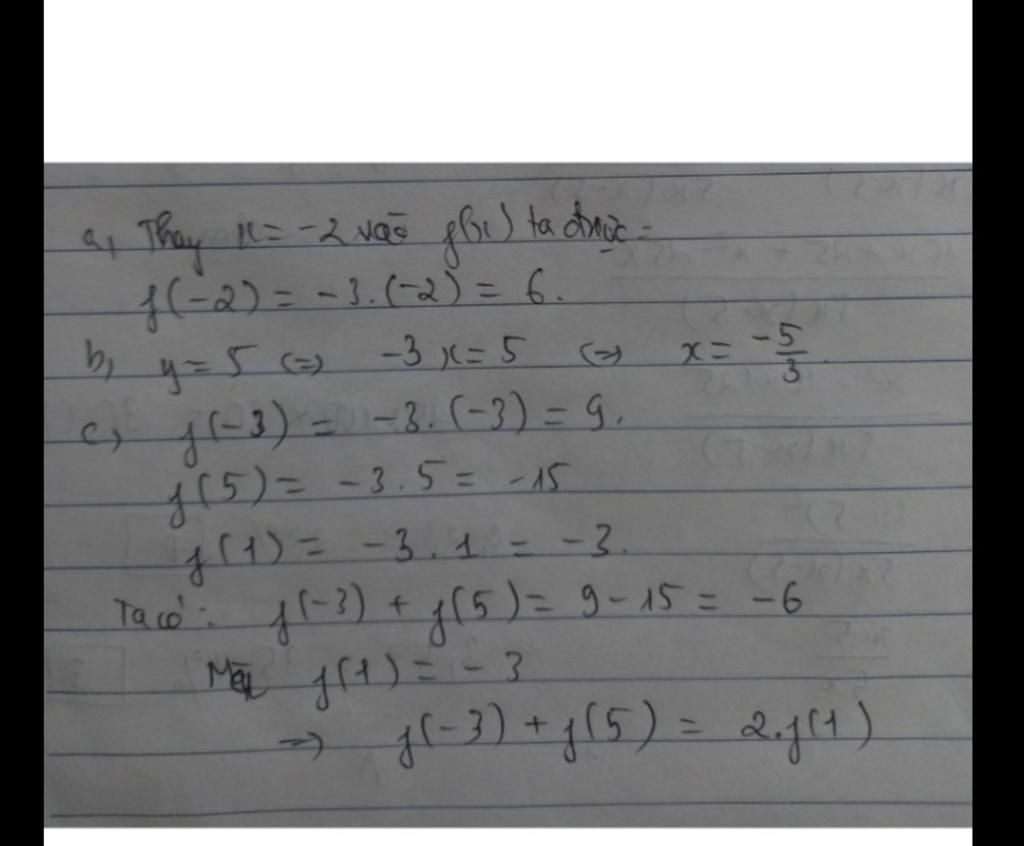 a, Thay x = -2 vào f(x) ta được:
f(-2) = -3.(-2) = 6.
b, y = 5 <=> -3x = 5 <=> x = -5/3.
c, f(-3) = -3.(-3) = 9.
f(5) = -3.5 = -15
f(1) = -3.1 = -3.
Ta có: f(-3) + f(5) = 9 - 15 = -6
f(1) = -3
=> f(-3) + f(5) = 2.f(1)